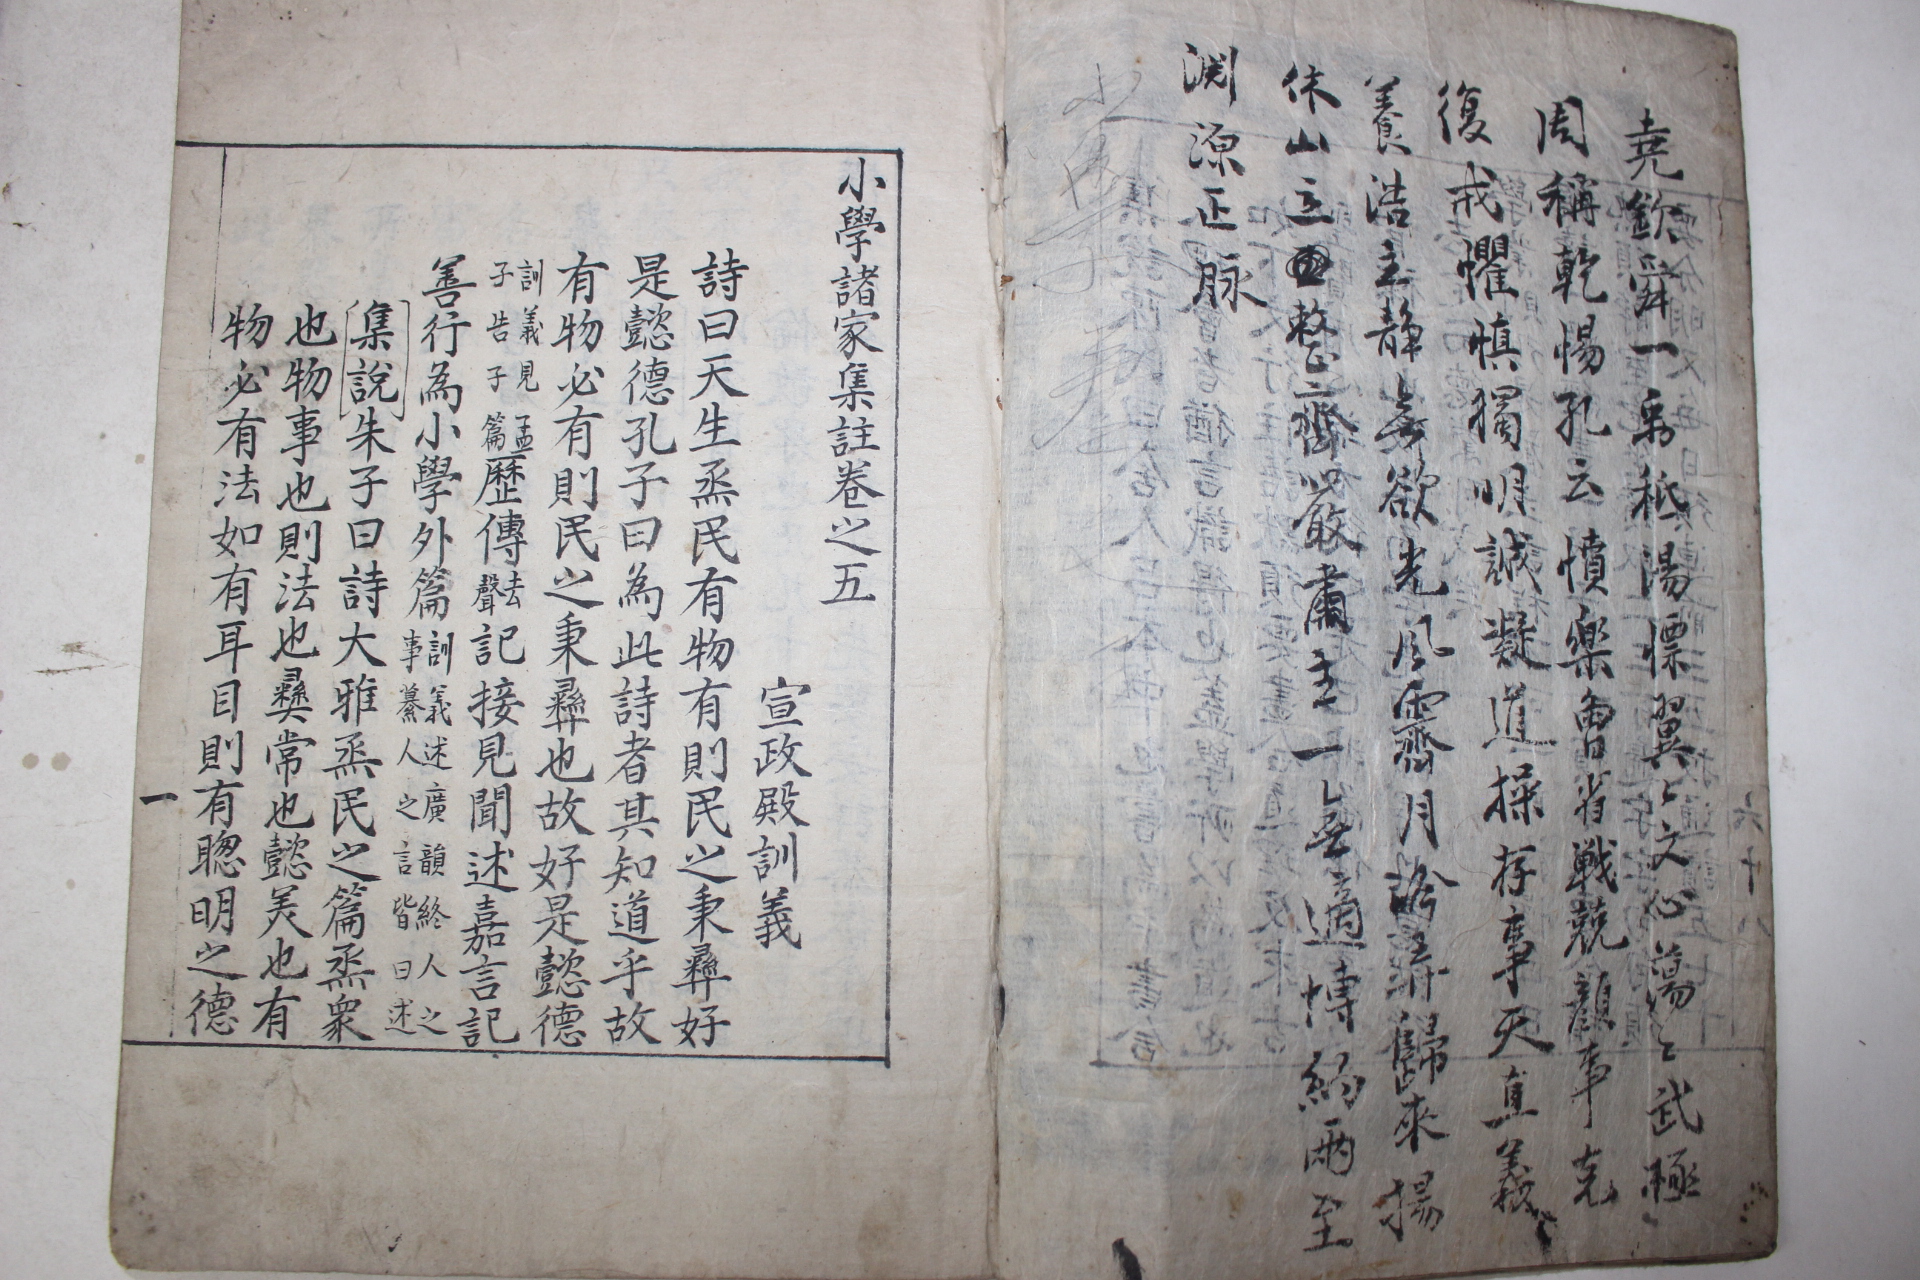 堯欽舜一禹祗湯慄翼〻文心蕩〻武極
周稱乾惕孔云憤樂曾省戰兢顔事克
復戒懼愼獨明誠凝道操存事天直義
養浩主靜無欲光風霽月吟弄歸來揚
休山立整齊嚴肅主一無適博約兩至
淵源正脉
小學諸家集註卷之五
宣政殿訓義
詩曰天生烝民有物有則民之秉彛好
是懿德孔子曰為此詩者其知道乎故
有物必有則民之秉彛也故好是懿德
訓義見孟子告子篇歷傳去聲記接見聞述嘉言記
善行為小學外篇訓義述廣韻終人之事纂人之言皆曰述
集說朱子曰詩大雅烝民之篇烝衆
也物事也則法也彛常也懿美也有
物必有法如有耳目則有聰明之德
一